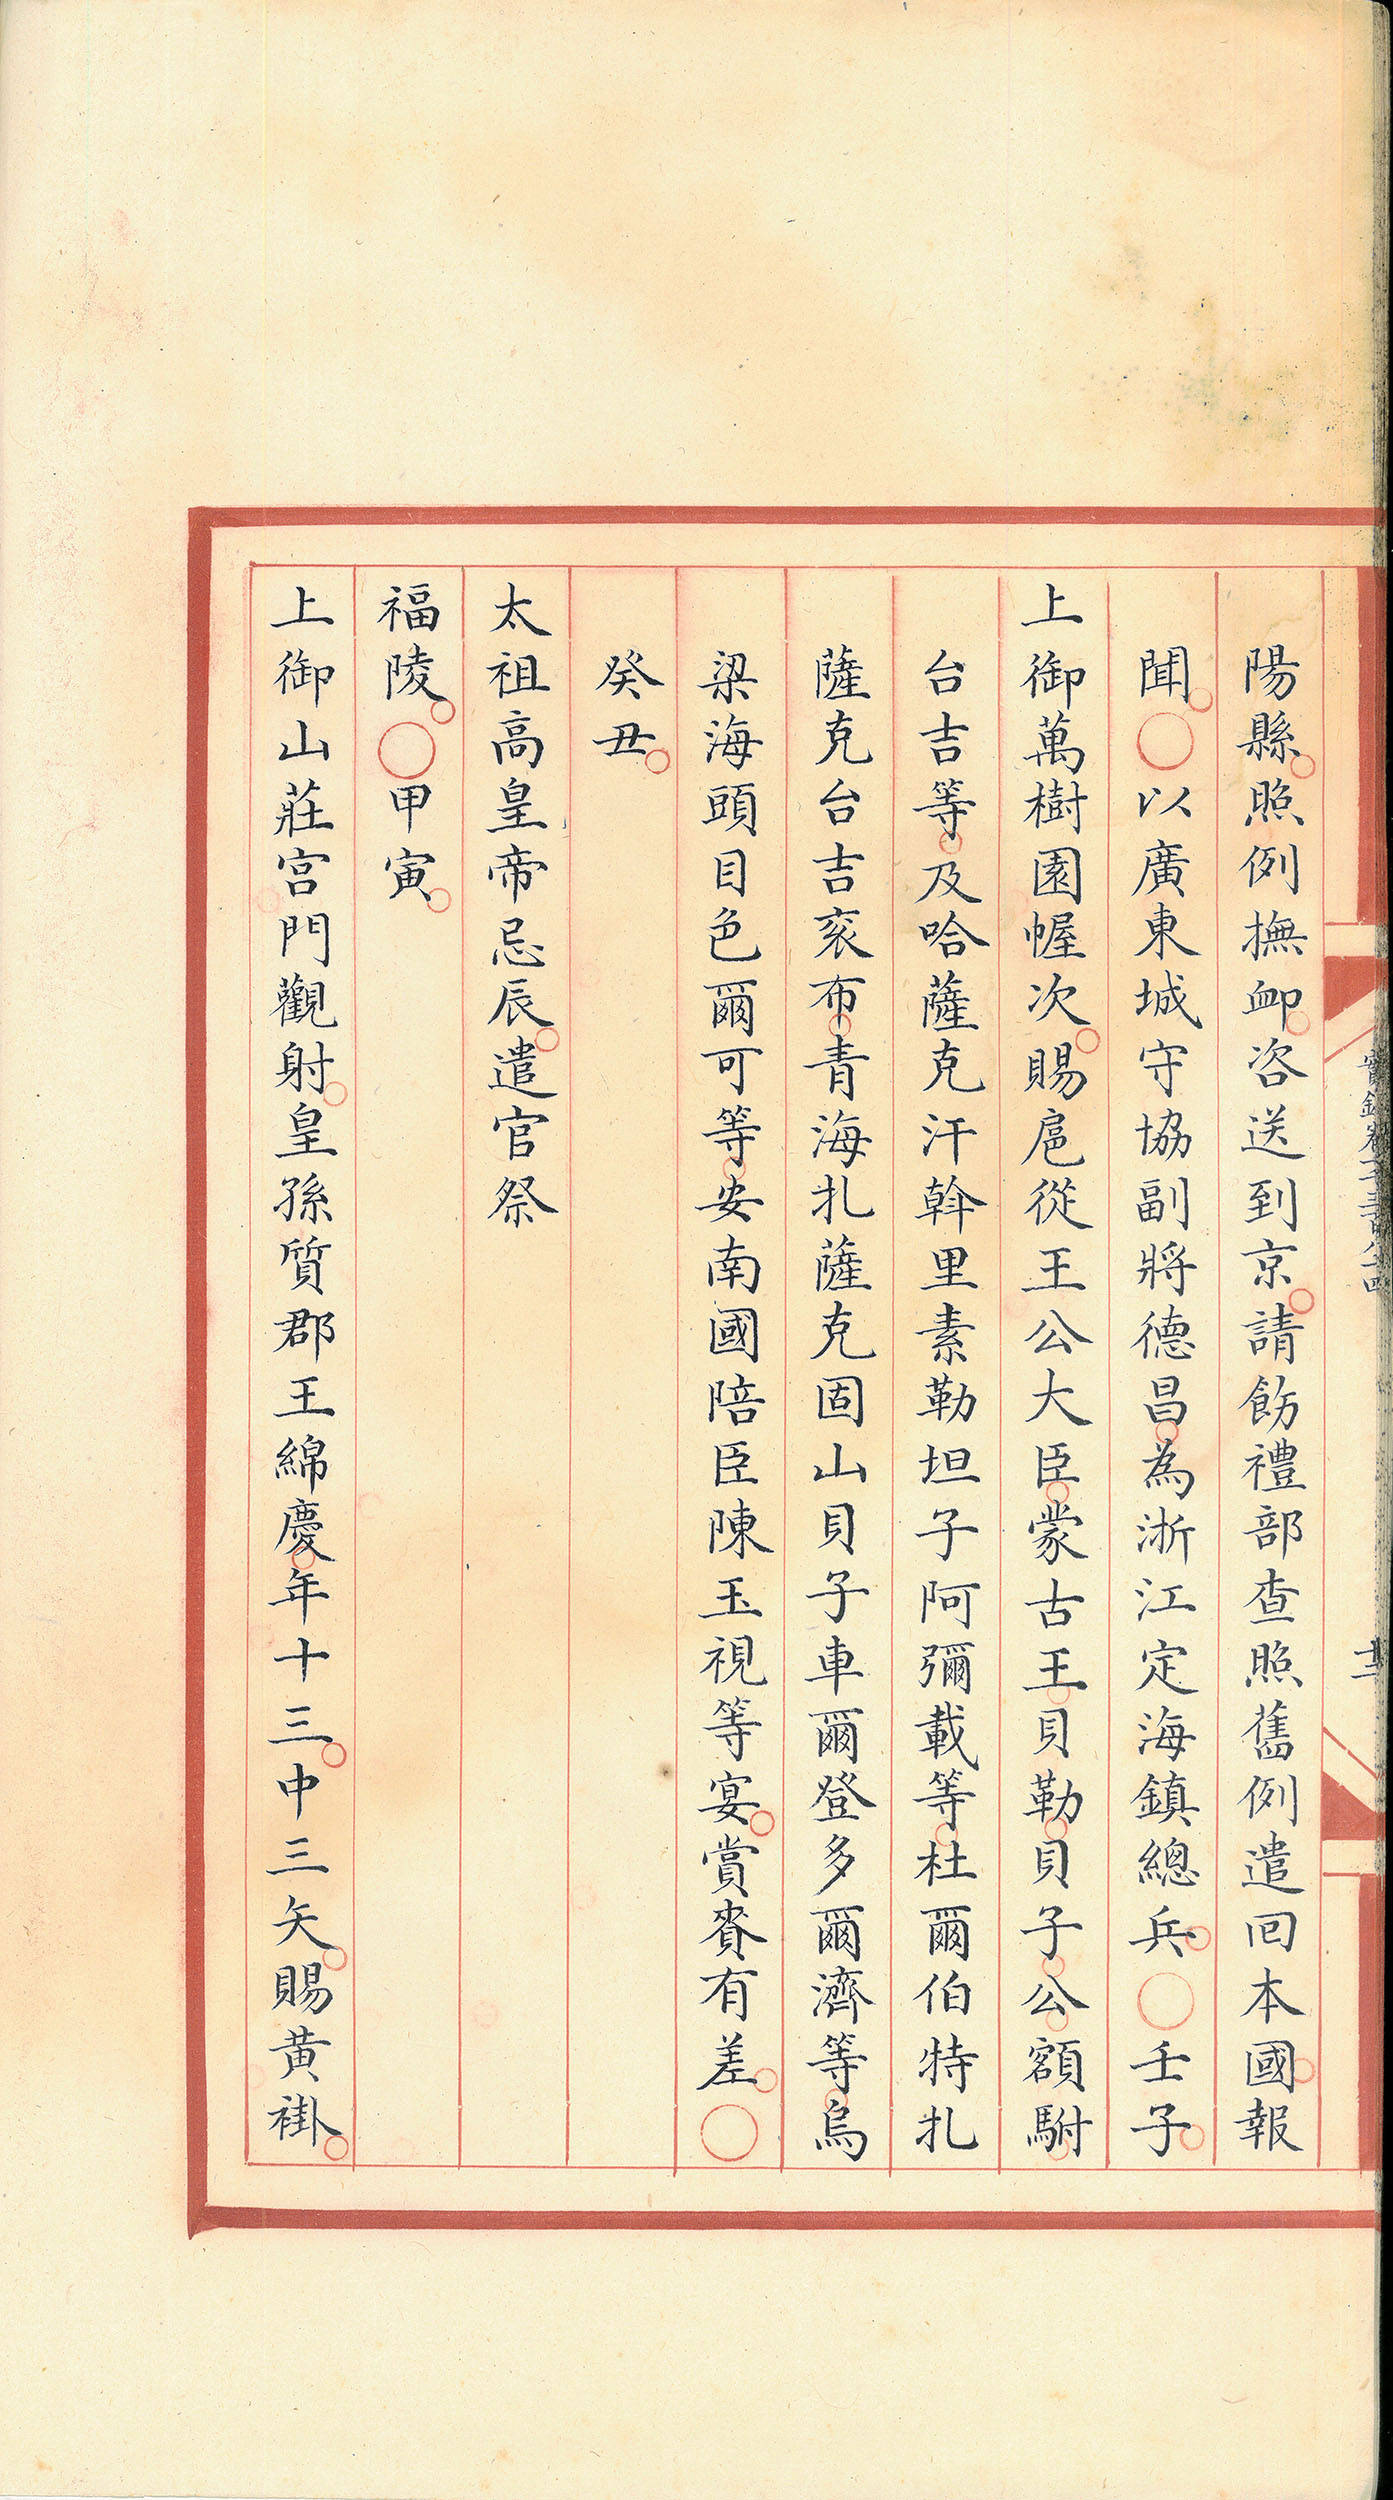 陽縣照例撫卹咨送到京請飭禮部查照舊例遣回本國報
聞○以廣東城守協副將德昌為浙江定海鎮總兵○壬子
上御萬樹園幄次賜扈從王公大臣蒙古王貝勒貝子公額駙
台吉等及哈薩克汗斡里素勒坦子阿彌載等杜爾伯特扎
薩克台吉袞布青海扎薩克固山貝子車爾登多爾濟等烏
梁海頭目色爾可等安南國陪臣陳玉視等宴賞賚有差○
癸丑
太祖高皇帝忌辰遣官祭
福陵○甲寅
上御山莊宮門觀射皇孫質郡王綿慶年十三中三矢賜黃褂